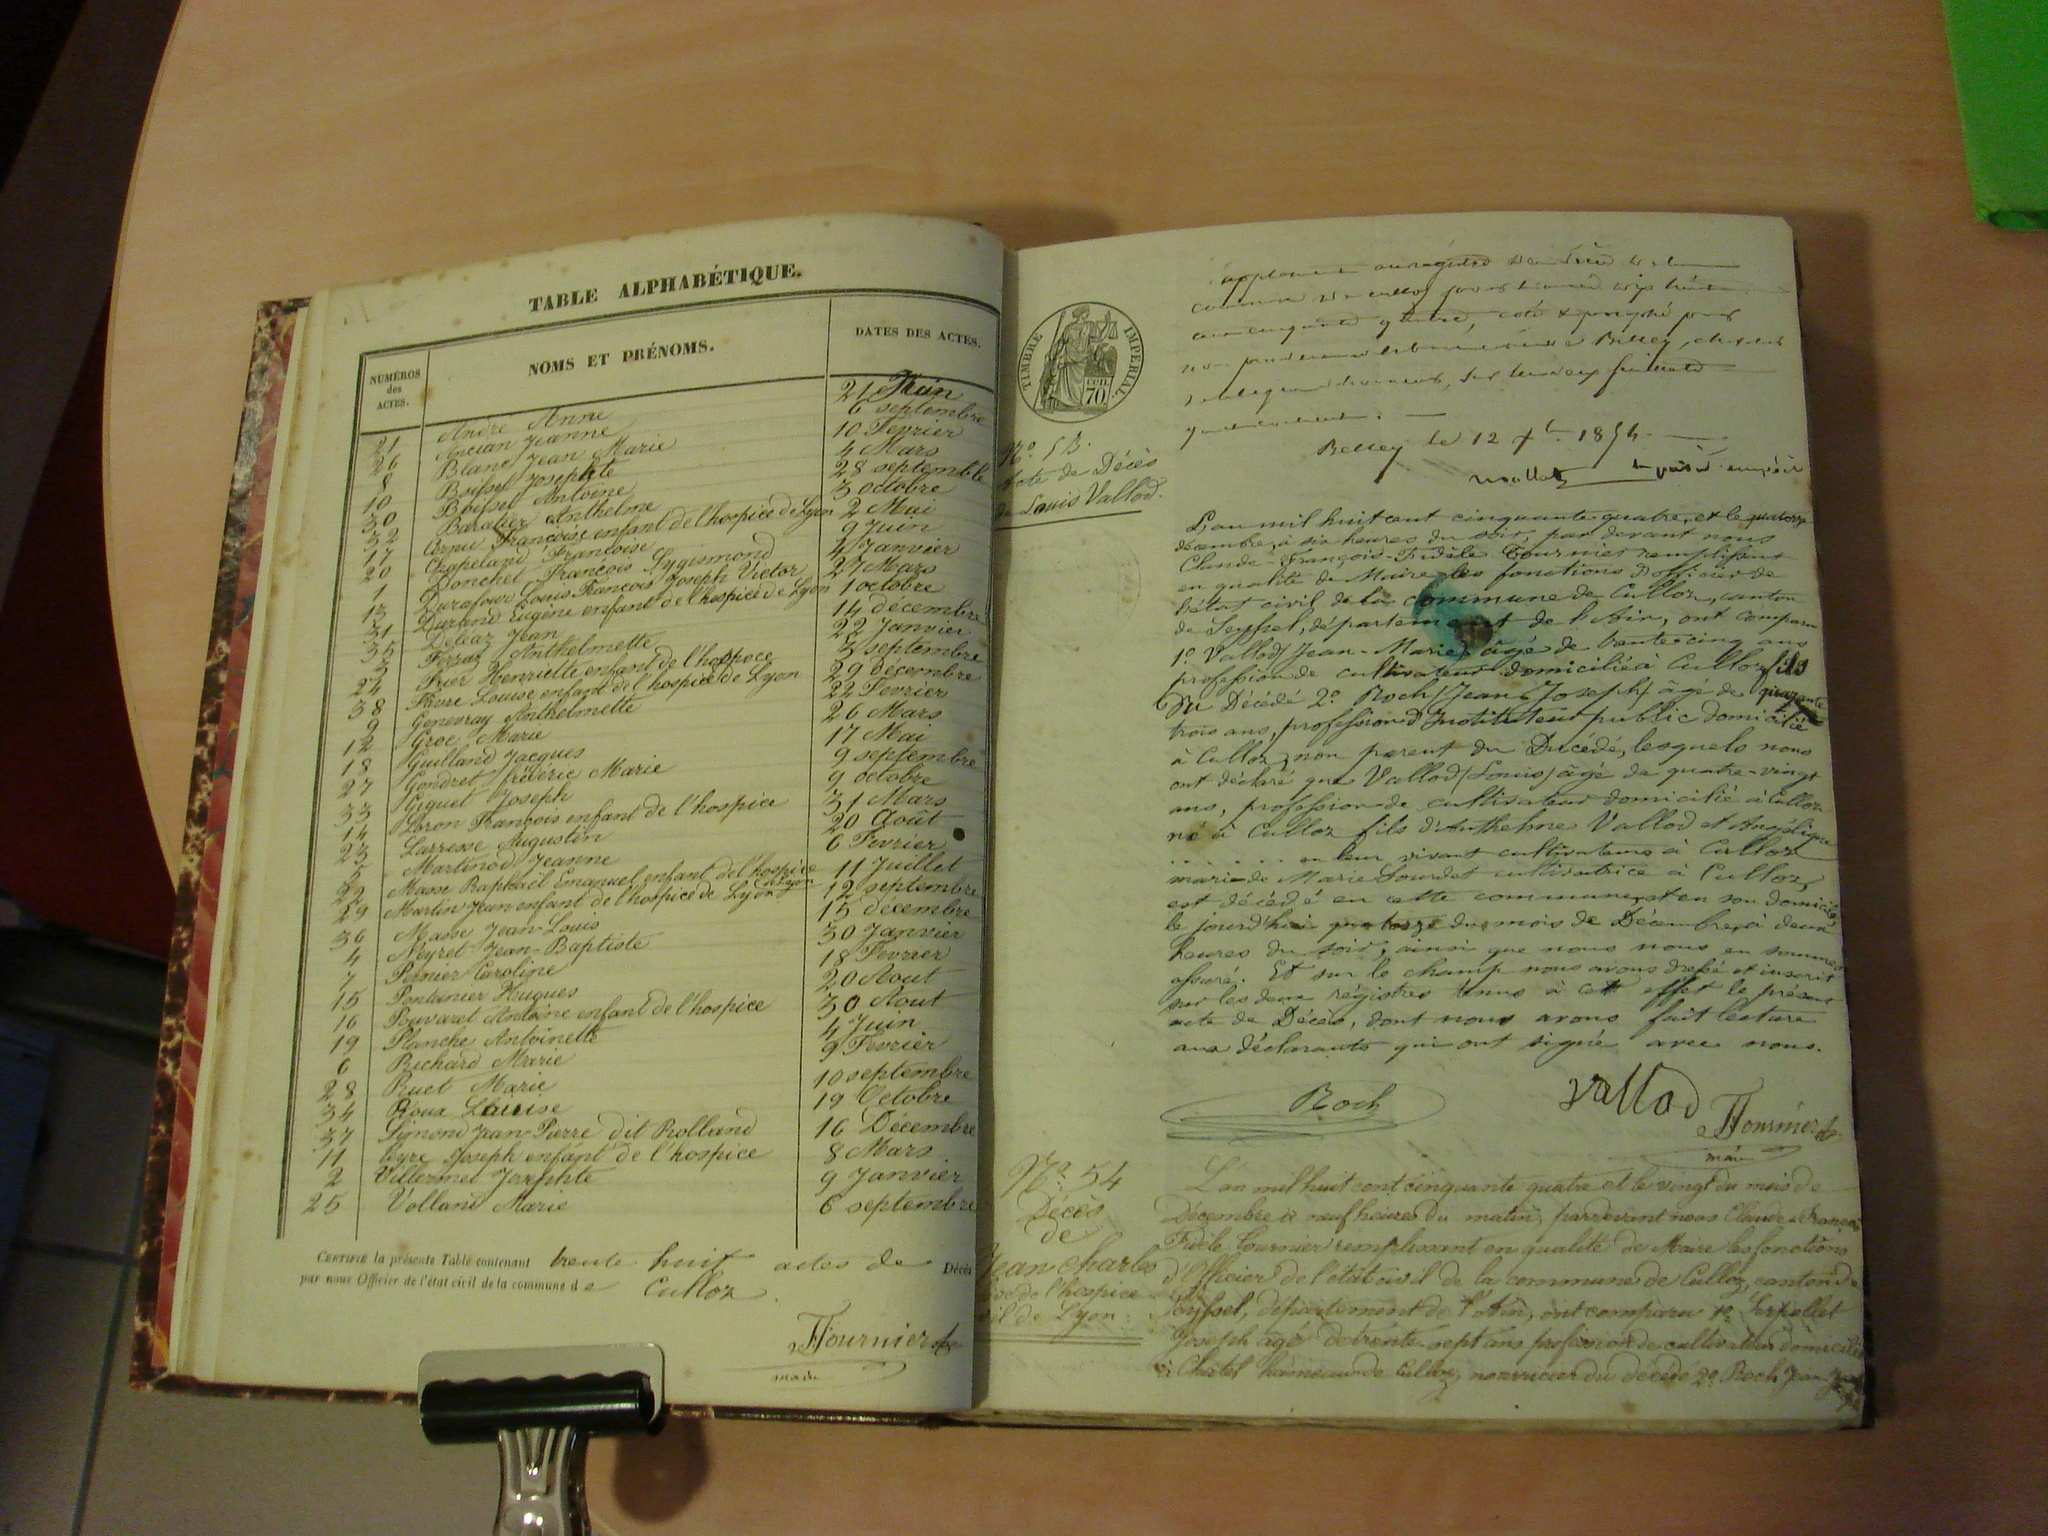 TABLE ALPHABÉTIQUE.
NUMÉROS des ACTES. NOMS ET PRÉNOMS. DATES DES ACTES.
21 André Anne 21 Juin
26 Ancian Jeanne 6 septembre
8 Blanc Jean Marie 10 Fevrier
10 Boissel Josephte 4 Mars
30 Boissel Antoine 28 septembre
32 Baratier Anthelme 3 octobre
17 Cornu Françoise enfant de l'hospice de Lyon 2 Mai
20 Chapeland Françoise 9 Juin
1 Donchel François Sygismond 4 Janvier
13 Durafour Louis François Joseph Victor 27 Mars
31 Durand Eugène enfant de l'hospice de Lyon 1 octobre
35 Deléaz Jean 14 décembre
3 Ferraz Anthelmette 22 Janvier
24 Frier Henriette enfant de l'hospice 3 septembre
38 Favre Louise enfant de l'hospice de Lyon 29 décembre
9 Genevray Anthelmette 22 Fevrier
12 Groz Marie 26 Mars
18 Guilland Jacques 17 Mai
27 Gondret fréderic Marie 9 septembre
33 Giguet Joseph 9 octobre
14 Loron François enfant de l'hospice 31 Mars
23 Larresse Augustin 20 Août
5 Martinod Jeanne 6 Fevrier
22 Masse Raphaël Emanuel enfant de l'hospice de Lyon 11 Juillet
29 Martin Jean enfant de l'hospice de Lyon 12 septembre
36 Masse Jean-Louis 15 décembre
4 Neyret Jean-Baptiste 30 Janvier
7 Caroline 18 Fevrier
15 Pontanier Hugues 20 Aout
16 Antoine enfant de l'hospice 30 Aout
19 Planche Antoinette 4 Juin
6 Richard Marie 9 Fevrier
28 Ruet Marie 10 septembre
34 Roux Louise 19 Octobre
37 Simond Jean-Pierre dit Rolland 16 Décembre
11 Joseph enfant de l'hospice 8 Mars
2 Villermet Josephte 9 Janvier
25 Volland Marie 6 septembre
CERTIFIE la présente Table contenant trente huit actes de Décès
par nous Officier de l'état civil de la commune de Culloz.
Fournier
maire
TIMBRE IMPERIAL
70
Belley le 12 1854
No 53.
acte de Décès
de Louis Vallod.
L'an mil huit cent cinquante quatre, et le quatorze
décembre, à six heures du soir, par devant nous
Claude-François-Fidèle Fournier remplissant
en qualité de Maire les fonctions d'officier de
l'état civil de la commune de Culloz, canton
de Seyssel, département de l'Ain, ont comparu
1o Vallod Jean-Marie âgé de trente-cinq ans
profession de cultivateur domicilié à Culloz fils
du Décédé 2o Roch Jean Joseph âgé de quarante
trois ans, profession d'Instituteur public domicilié
à Culloz non parent du Ducédé, lesquels nous
ont déclaré que Vallod Louis âgé de quatre-vingt
ans, profession de cultivateur domicilié à Culloz
né à Culloz fils d'Anthelme Vallod et Angélique
....... en leur vivant cultivateurs à Culloz
marié de Marie Sourdet cultivatrice à Culloz,
est décédé en cette commune et en son domicile,
le jourd'hui quatorze du mois de Décembre à deux
heures du soir, ainsi que nous nous en sommes
assuré. Et sur le champ nous avons dressé et inscrit
sur les deux régistres tenus à cet effet le présent
acte de Décès, dont nous avons fait lecture
aux déclarants qui ont signé avec nous.
Roch
Vallod
Fournier
maire
No. 54
Décès
de
Jean Charles
de l'hospice
de Lyon.
L'an mil huit cent cinquante quatre et le vingt du mois de
Décembre à neuf heures du matin, pardevant nous Claude François
Fidèle Fournier remplissant en qualité de Maire les fonctions
d'Officier de l'état civil de la commune de Culloz, canton de
Seyssel, département de l'Ain, ont comparu 1o Serpollet
Joseph âgé de trente-sept ans profession de cultivateur domicilié
à Châtel hameau de Culloz, nourricier du décédé 2o Roch Jean